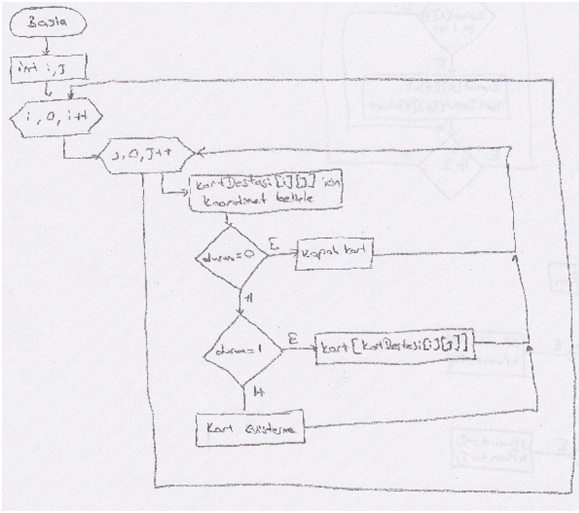 Basla
int i, J
i, 0, i++
J, 0, J++
kartDestasi[i][J] icin
koordinat belirle
durum=0
E
Kapali kart
H
durum=1
E
kart[kartDestasi[i][J]]
H
Kart Gösterme